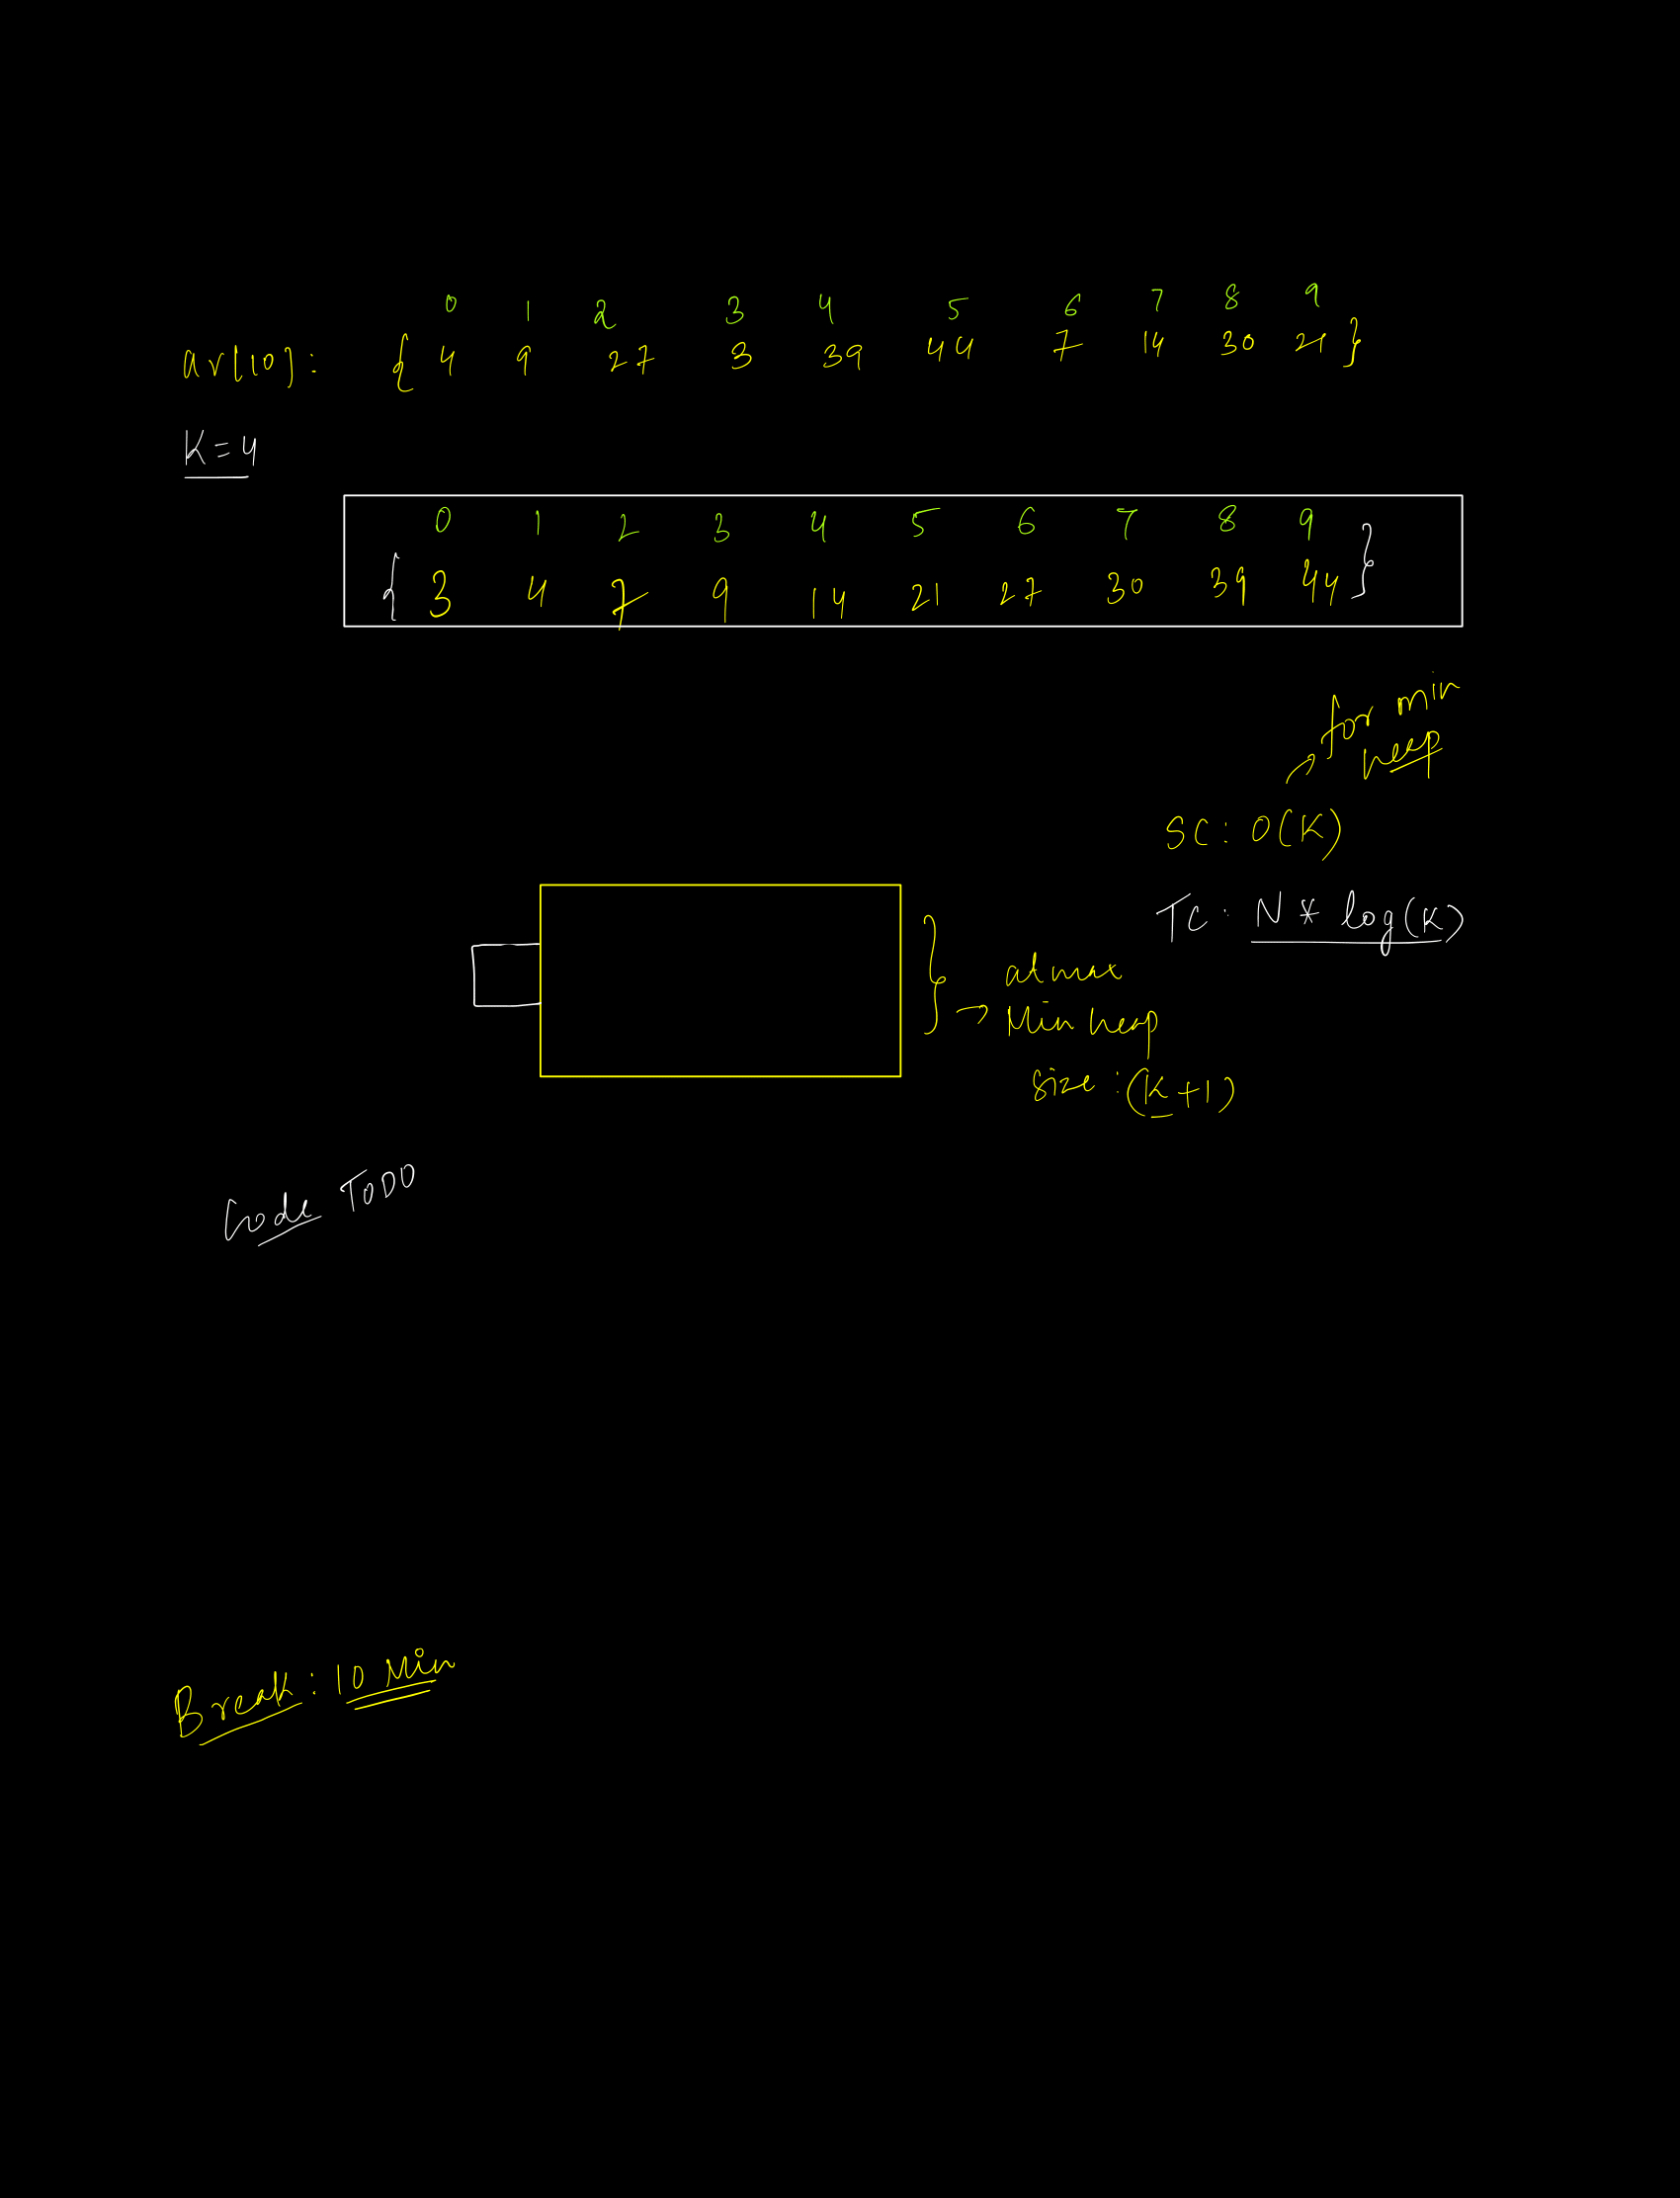 0 1 2 3 4 5 6 7 8 9
ar[10]: { 4 9 27 3 39 44 7 14 30 21 }
K=4
0 1 2 3 4 5 6 7 8 9
{ 3 4 7 9 14 21 27 30 39 44 }
→ for min
heap
SC: O(K)
TC: N * log(K)
} atmax
→ Min heap
size: (K+1)
Code TODO
Break: 10 Min